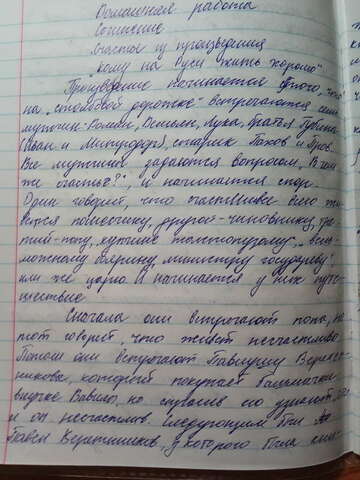 Домашняя работа
Сочинение
Счастье из произведения
"Кому на Руси жить хорошо"
Произведение начинается с того, что
на "столбовой дороженьке" встречаются семь
мужчин - Роман, Демьян, Лука, братья Губины
(Иван и Митродор), старик Пахом и Пров.
Все мужчины задаются вопросом, "В чём
же счастье?", и начинается спор.
Один говорит, что счастливее всего
помещику, другой - чиновнику,
купчине толстопузому",
можному боярину, министру государеву",
или же царю. И начинается у них путе-
шествие.
Сначала они встречают попа,
говорит, что живёт несчастливо.
Потом они встречают Павлушу Веретен-
никова, который покупает башмачки
внучке Вавилы, но спросив его узнают,
и он несчастлив. Следующим
Павел Веретенников, у которого